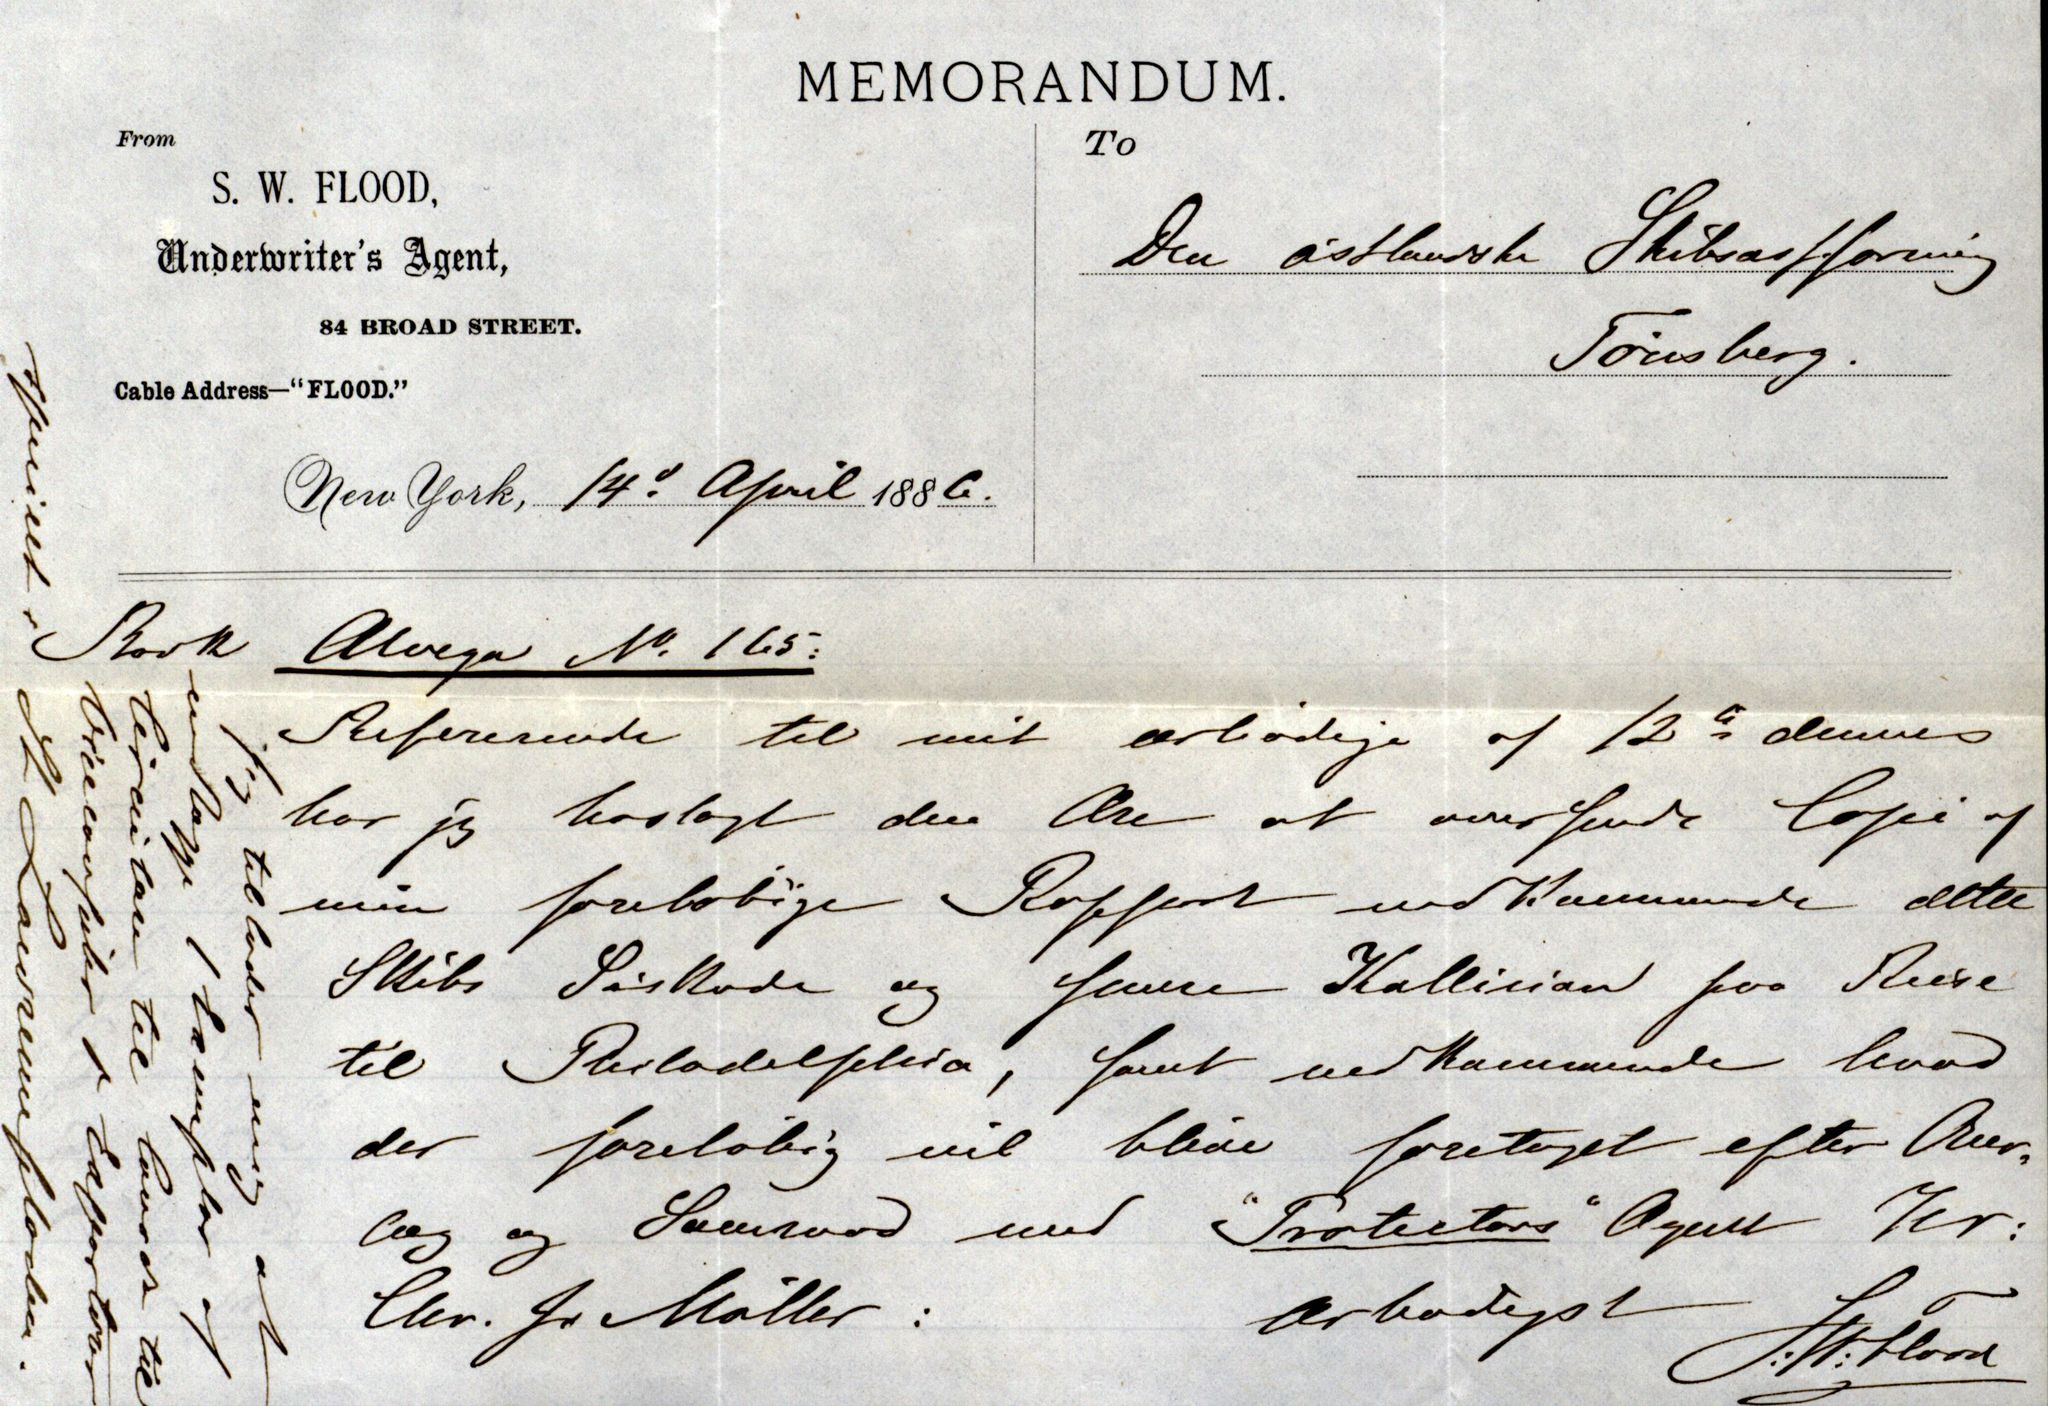 MEMORANDUM.
From
S. W. FLOOD,
Underwriter's Agent,
84 BROAD STREET.
Cable Address—"FLOOD."
New York, 14d April 1886.
To
Den östlandske Skibsassforening
Tönsberg.
Bark Alvega No. 165:
Refererende til mit ærbödige af 12te dennes
har jeg hoslagt den Ære at oversende Copie af
min foreløbige Rapport vedkommende dette
Skibs Söskade og senere Kollision paa Reise
til Philadelphia, samt vedkommende hvad
der foreløbig vil blive foretaget efter Over-
læg og Samraad med "Protectors" Agent Hr:
Chr. Jr Møller:
ærbødigst
S: W: Flood
Jeg tillader mig at
vedlægge 1 Exemplar af
Circulære til Lauvst til
Ekssportører
St Lawrencefloden.